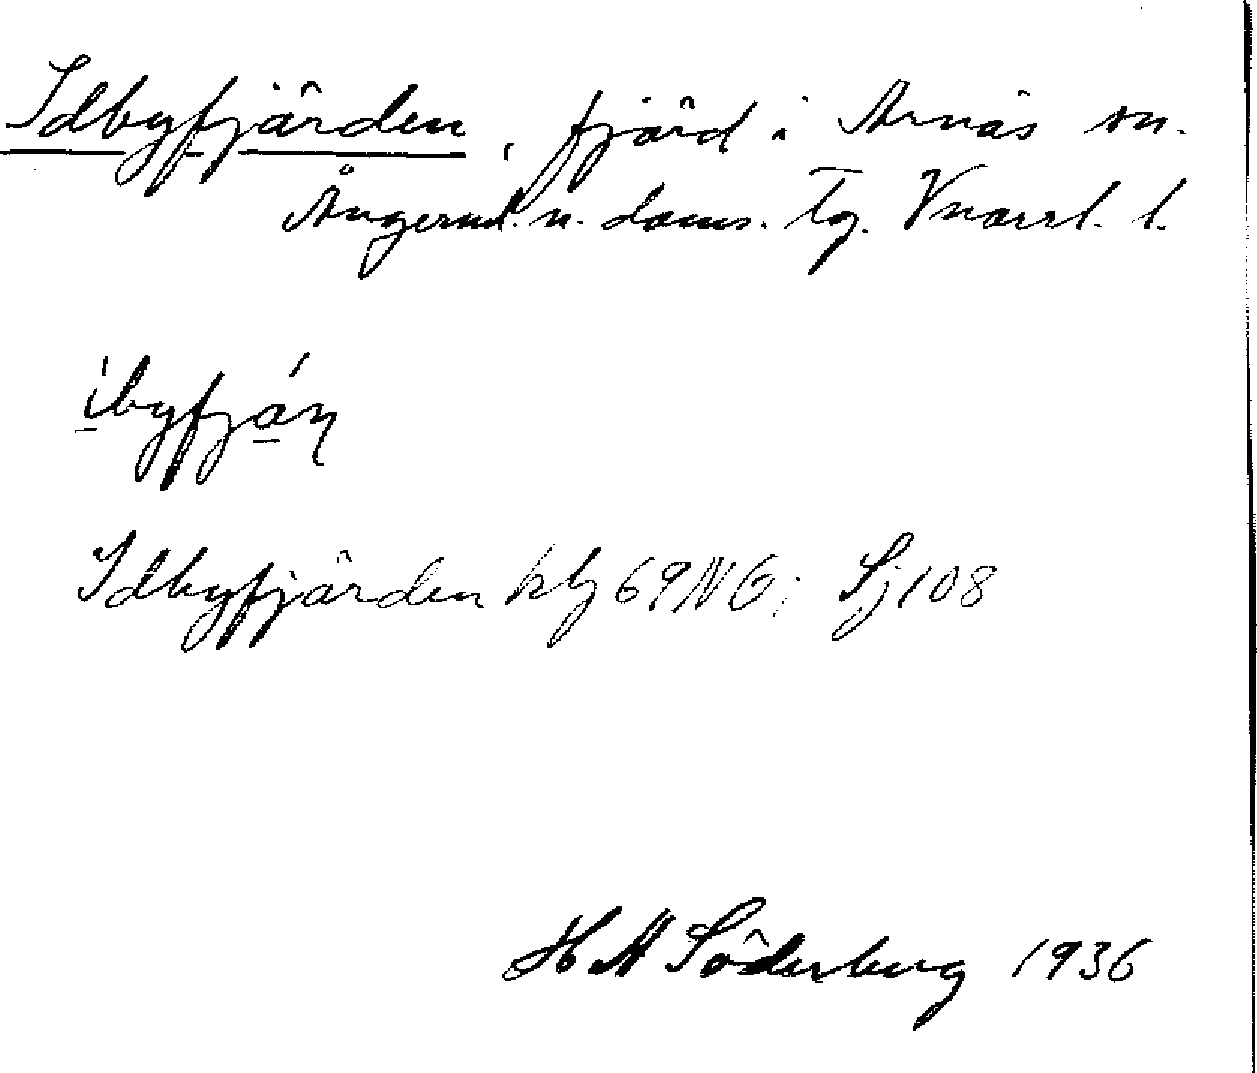 Idbyfjärden, fjärd i Arnäs sn.
Ångerml. n. doms. Tg. Vnorrl. l.
i̱byfja̱ń
Idbyfjärden kbj 69 NO; Sj 108
H A Söderberg 1936